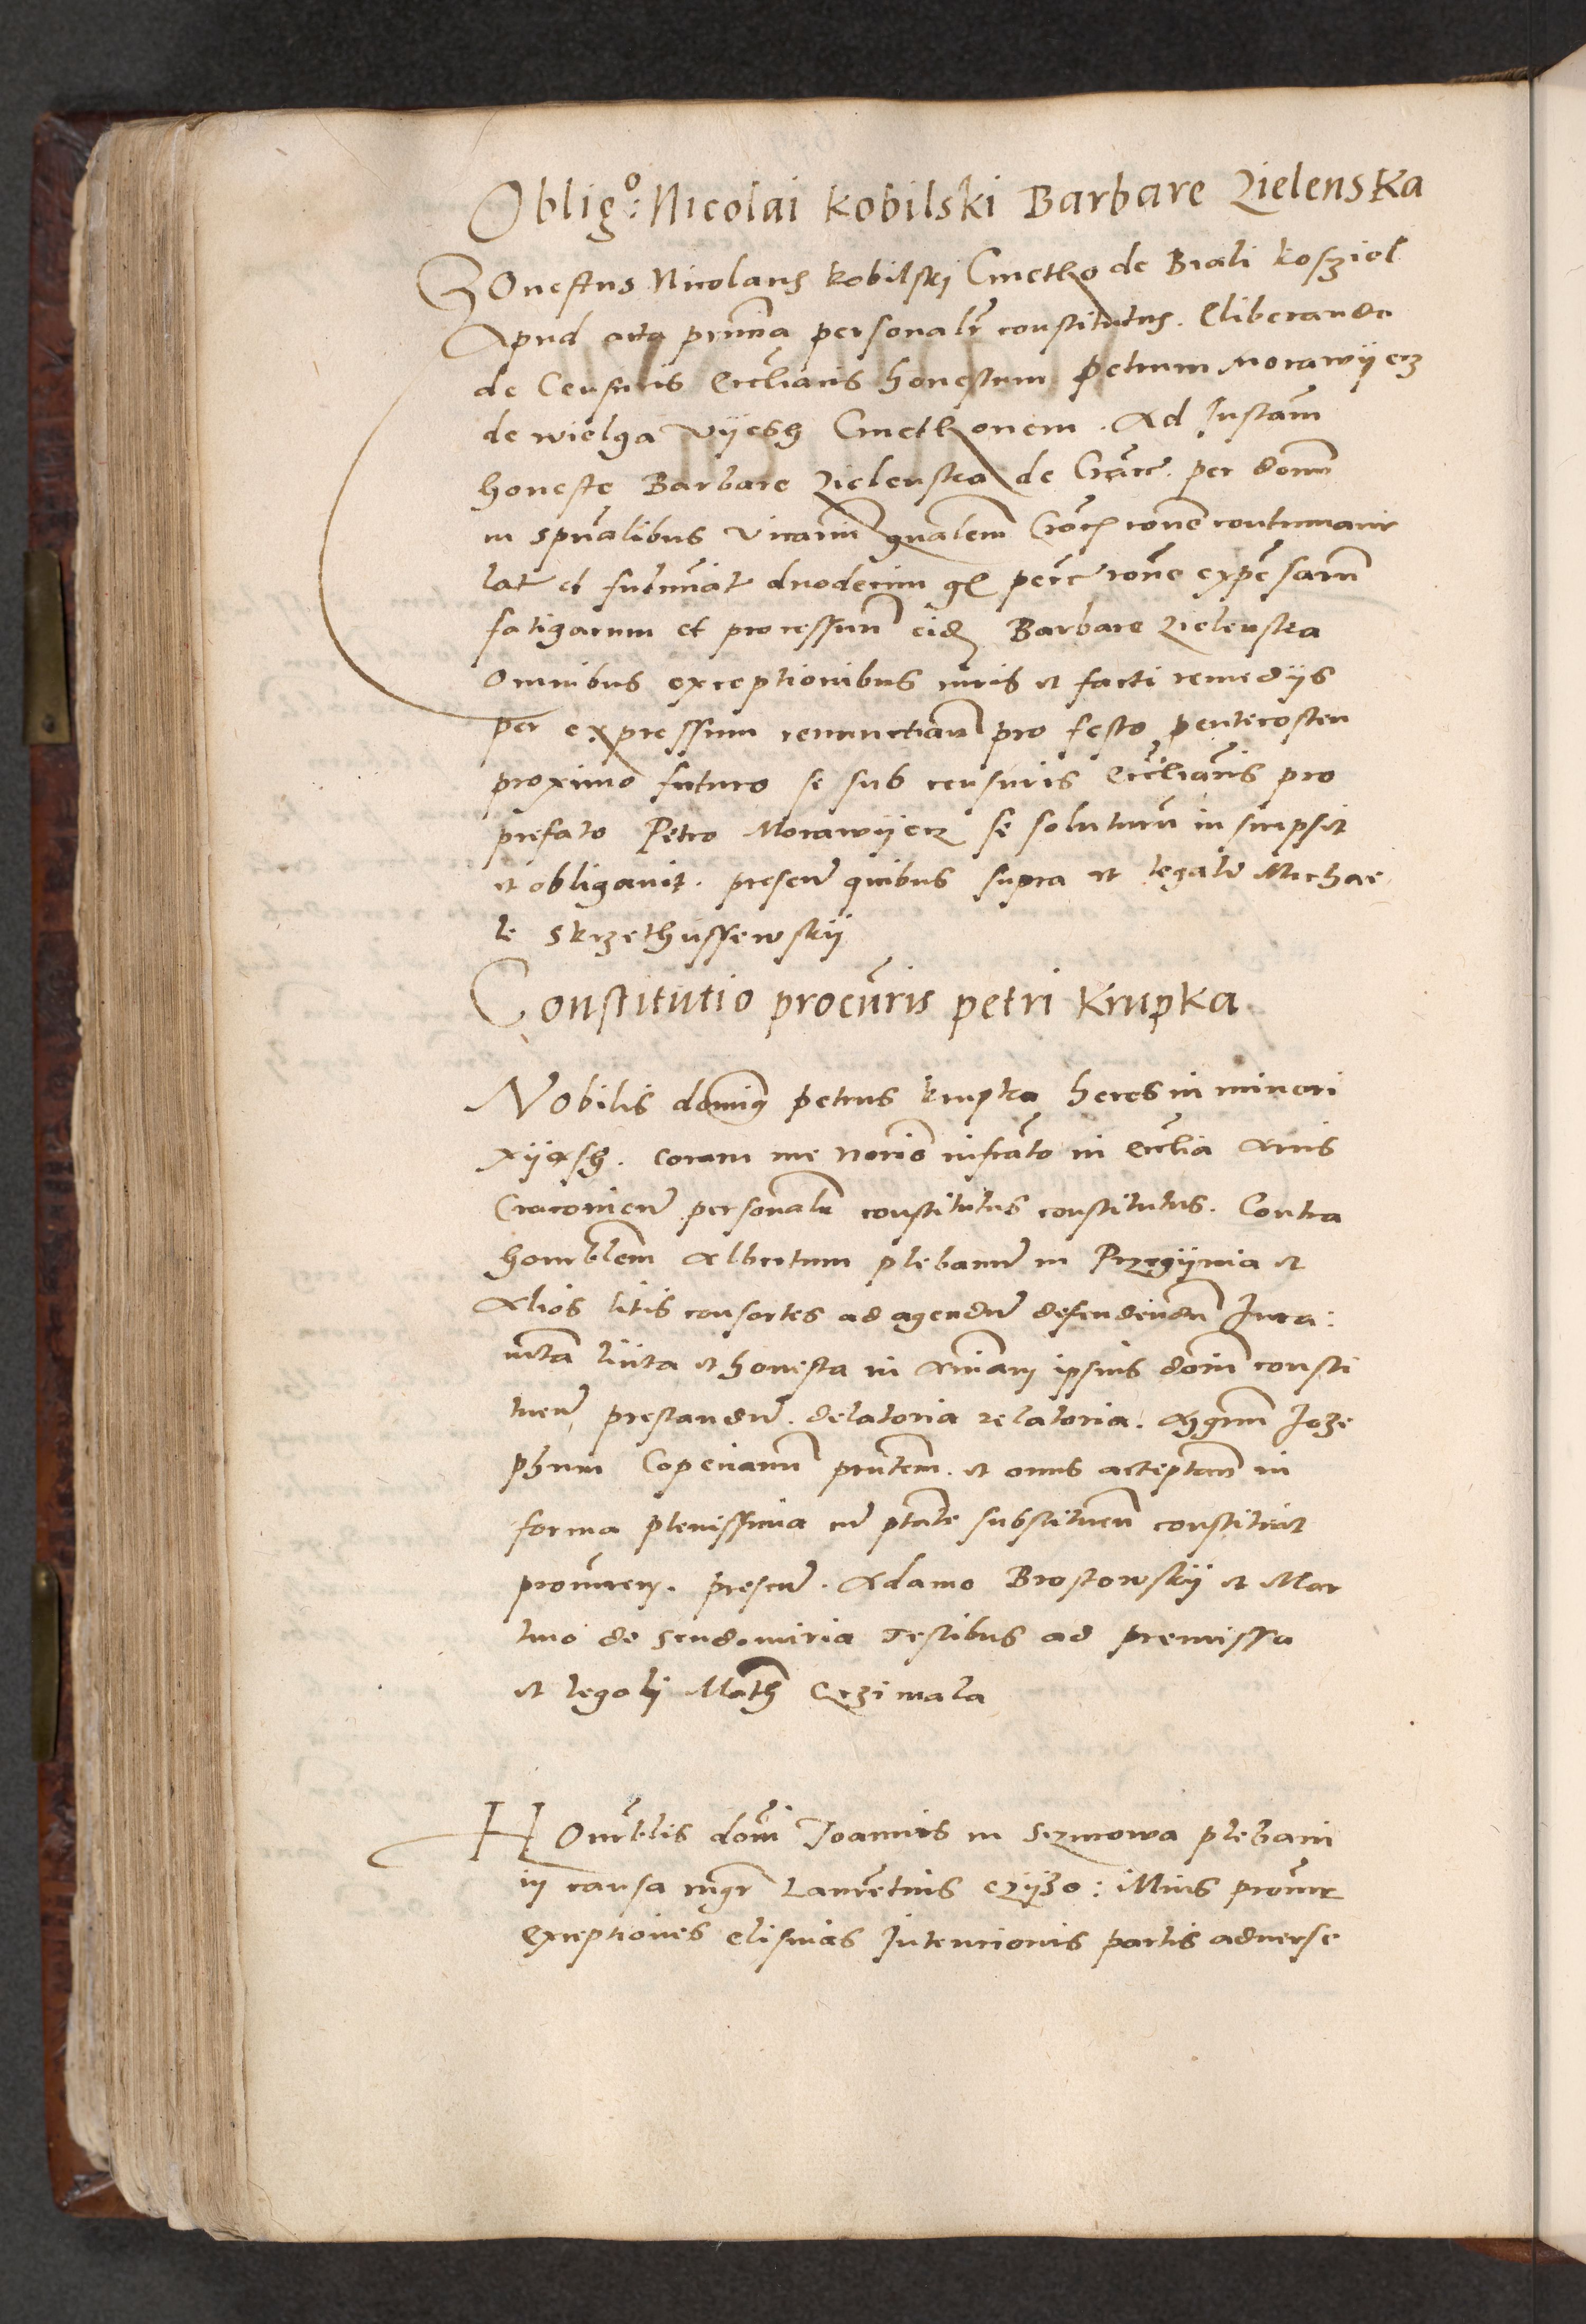 Oblig:o Nicolai Kobilski Barbare Zielenska
Honestus Nicolaus Kobilski Cmetho de Biali Kosziel
Apud acta pnntia personalr constitutus. Eliberando
de Censuris Eccliacis honestum Petrum Morawijecz
de wielga vijesz Cmethonem. Ad Instam
honeste Barbare Zielenska de Crac. per domn
in spualibus vicarium gnalem Crac rone contumacie
lat et fulminat duodecim gr perc rone expensarum
fatigarum et processum eid Barbare Zielenska
Omnibus exceptionibus iuris et facti remedijs
per expressum renunctiam pro festo pentecosten
proximo futuro se sub censuris Eccliacis pro
prefato Petro Morawijecz se soluturum in scripsit
et obligavit. presen quibus supra et legali Michae
le Skrzethussewskij
Constitutio procuris petri Krupka
Nobilis dominus petrus krupka heres in minori
xijasz. coram me norio infrato in Ecclia Arcis
Cracovien personalr constitutus constitutus. Contra
honorblem Albertum plebanum in Przegijnia et
Alios litis consortes ad agendum defendendum Iura:
mta licita et honesta in Animam ipsius domi consti
tuen prestandum. delatoria relatoria. Mgrum Joze
phum Copeianum pntem. et onus acceptan in
forma plenissima cum ptate substituen constituit
procurem. presen. Adamo Brostowskij et Mar
tino de Sendomiria Testibus ad premissa
et legali Math Czimala
Honorblis domi Joannis in Sczmowa plebani
in causa mgr Laurentius czijzo: illius procur
exceptiones elisivas Intencionis partis adverse